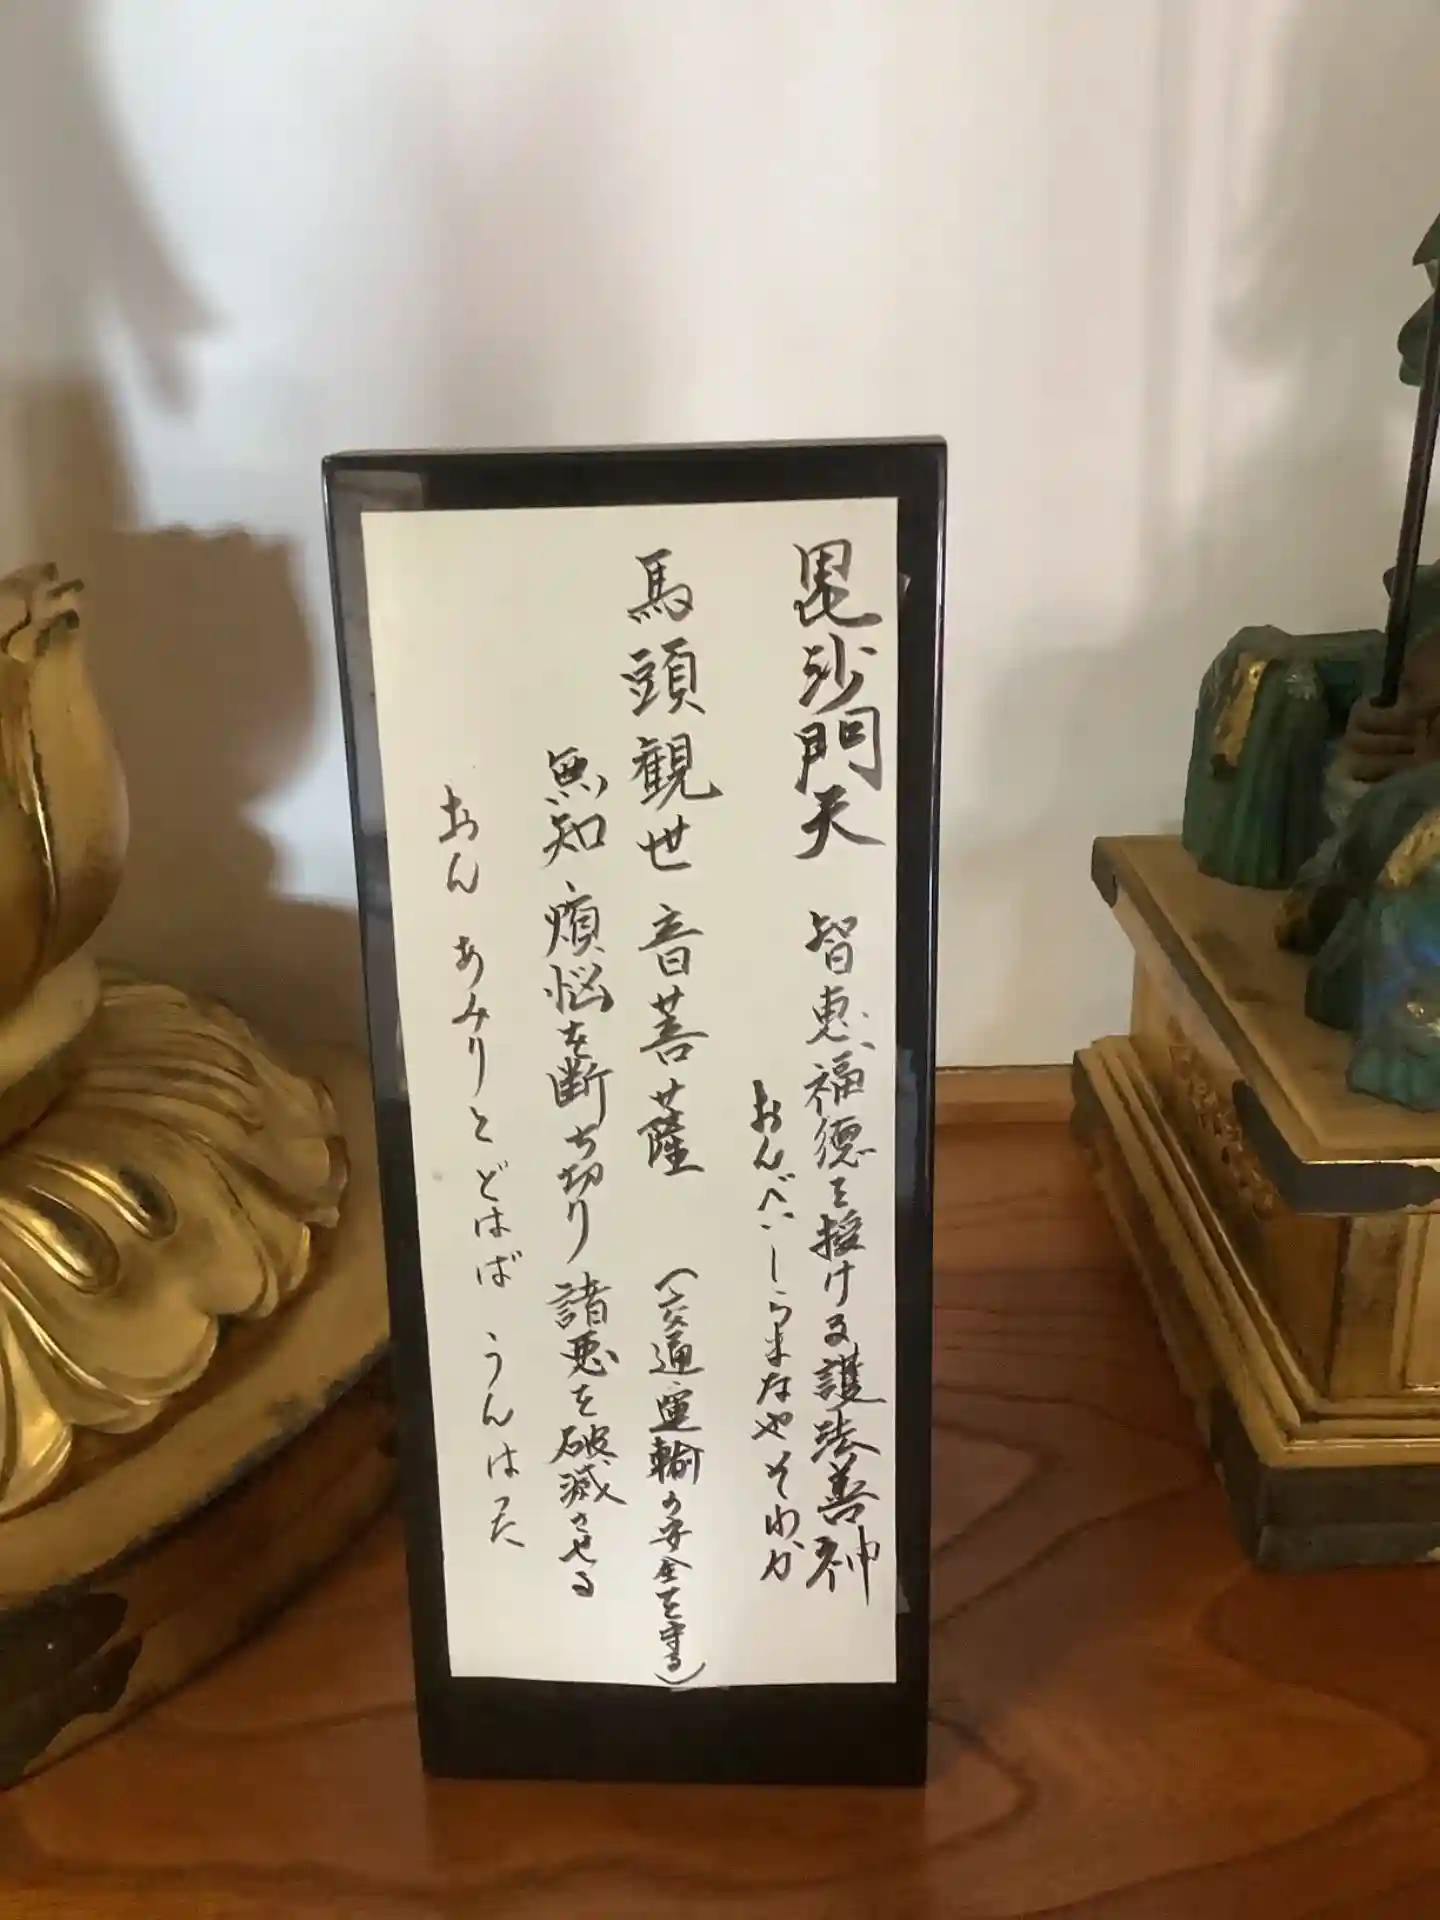 毘沙門天 智恵福徳を授ける護法善神
おんべいしらまなやそわか
馬頭観世音菩薩 (交通運輸の安全を守る)
無知、煩悩を断ち切り諸悪を破滅させる
おん あみりと どはば うんはった